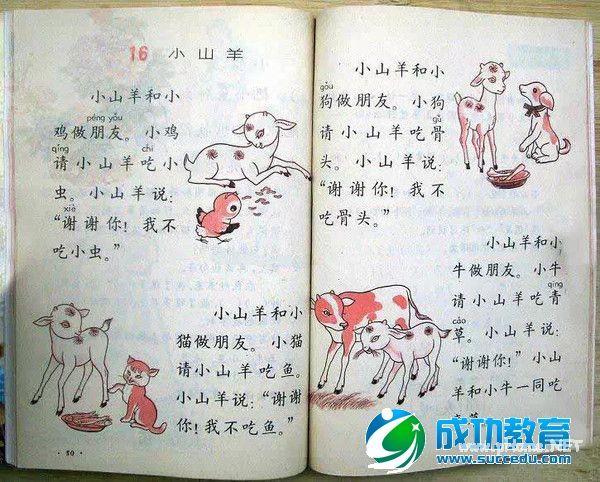 16 小山羊
小山羊和小
péng yǒu
鸡做朋友。小鸡
qǐng chī
请小山羊吃小
虫。小山羊说:
xiè
“谢谢你!我不
吃小虫。”
小山羊和小
猫做朋友。小猫
请小山羊吃鱼。
小山羊说:“谢谢
你!我不吃鱼。”
·50·
小山羊和小
gǒu
狗做朋友。小狗
gǔ
请小山羊吃骨
头。小山羊说:
“谢谢你!我不
吃骨头。”
小山羊和小
牛做朋友。小牛
qīng
请小山羊吃青
cǎo
草。小山羊说:
“谢谢你!”小山
羊和小牛一同吃
成功教育
www.succedu.com